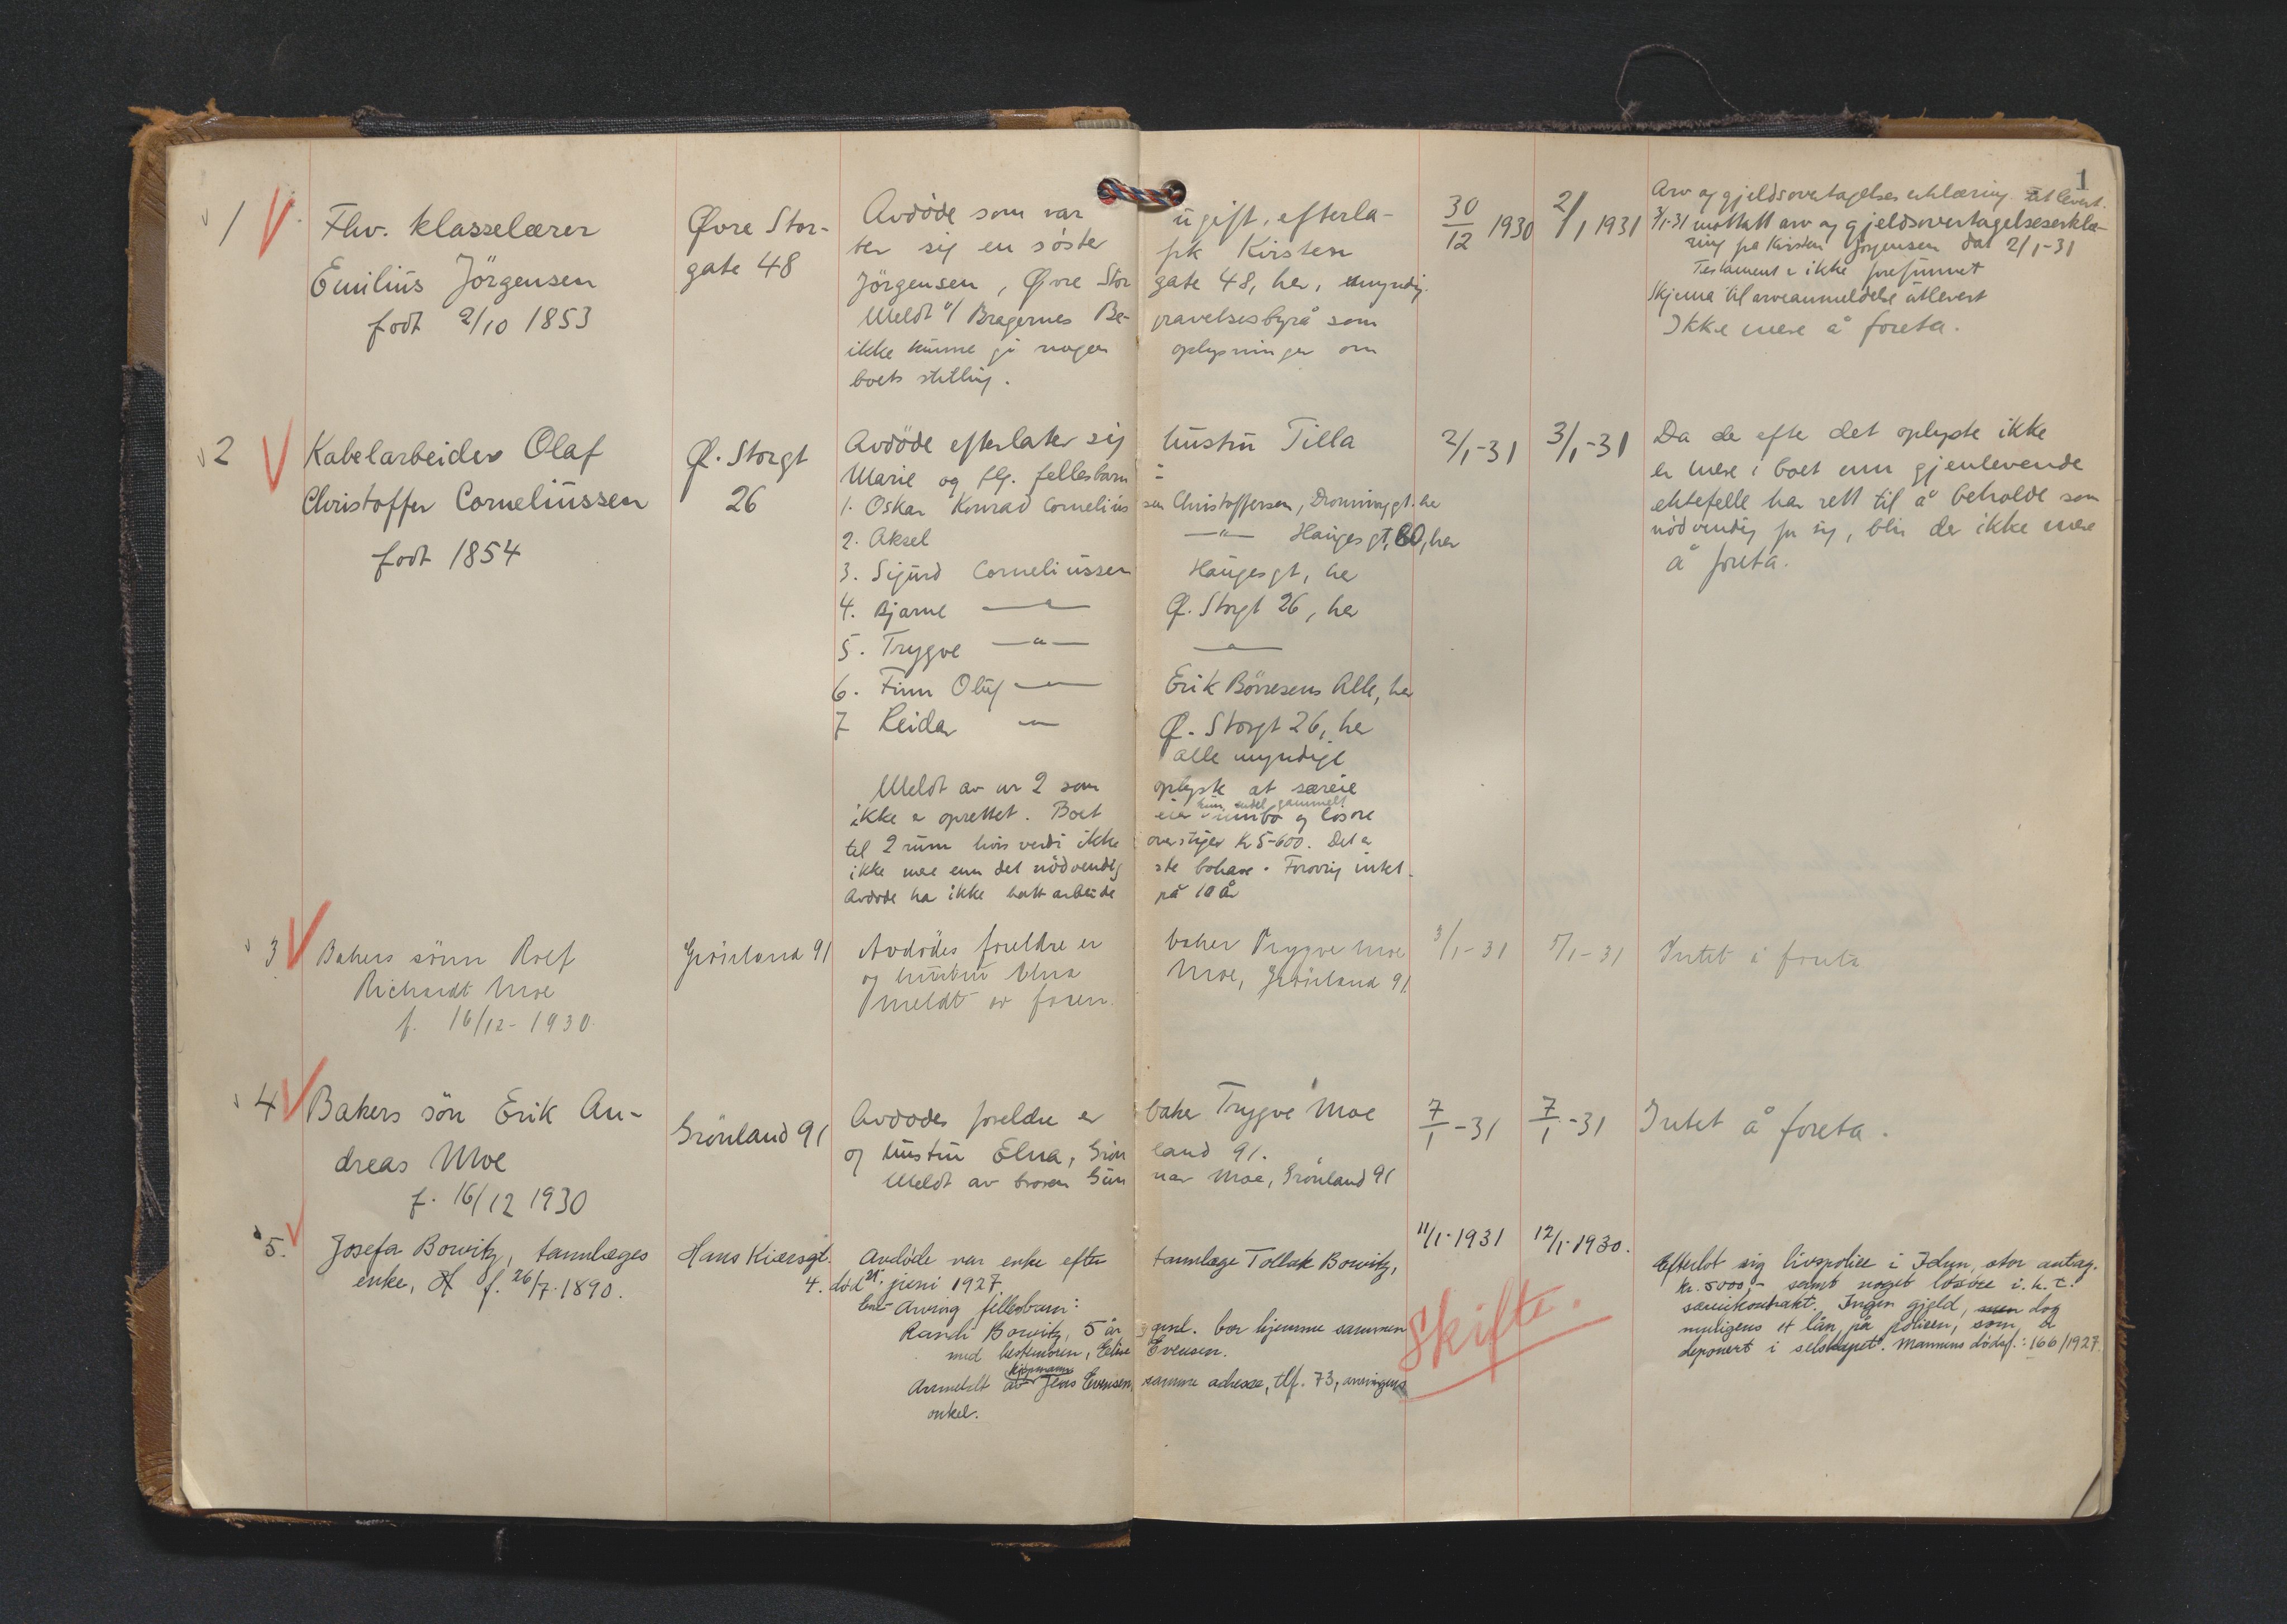 1
1 Fhv. klasselærer
Emilius Jörgensen
født 2/10 1853
Øvre Stor-
gate 48
Avdöde som var ugift, efterla-
ter sig en söster frk Kirsten
Jörgensen, Øvre Stor gate 48, her, myndig.
Meldt v/ Bragernes Be- gravelsesbyrå som
ikke kunne gi nogen oplysninger om
boets stilling.
30/12 1930
2/1 1931
Arv og gjeldsovertagelses erklæring utlevert.
3/1-31 mottatt arv og gjeldsovertagelseserklæ-
ring fra Kirsten Jörgensen dat 2/1-31
Testament er ikke forefunnet
Skjema til arveanmeldelse utlevert
Ikke mere å foreta.
2 Kabelarbeider Olaf
Christoffer Corneliussen
født 1854
Ø. Storgt
26
Avdöde efterlater sig hustru Tilla
Marie og flg. fellesbarn:
1. Oskar Konrad Cornelius sen Christoffersen, Dronninggt. her
2. Aksel —"— Haugesgt, 80, her
3. Sigurd Corneliussen Haugesgt, her
4. Bjarne —"— Ø. Storgt 26, her
5. Trygve —"— —"—
6. Finn Oluf —"— Erik Börresens Alle, her
7 Reidar —"— Ø. Storgt 26, her
alle myndige
Meldt av nr 2 som oplyste at særeie
ikke er oprettet. Boet eier kun endel gammelt innbo og lösöre
til 2 rum hvis verdi ikke overstiger kr 5-600. Det er
ikke mere enn det nödvendig ste bohave. Forövrig intet.
Avdöde har ikke hatt arbeide på 10 år
2/1-31
3/1-31
Da der efter det oplyste ikke
er mere i boet enn gjenlevende
ektefelle har rett til å beholde som
nödvendig for sig, blir der ikke mere
å foreta.
3 Bakers sönn Rolf
Richardt Moe
f. 16/12-1930
Grönland 91
Avdödes foreldre er baker Trygve Moe
og hustru Elna Moe, Grönland 91.
meldt av faren.
3/1-31
5/1-31
Intet å foreta
4 Bakers sön Erik An-
dreas Moe
f. 16/12 1930
Grönland 91
Avdödes foreldre er baker Trygve Moe
og hustru Elna, Grön land 91.
Meldt av broren Gun nar Moe, Grönland 91
7/1-31
7/1-31
Intet å foreta.
5. Josefa Borwitz, tannlæges
enke, f. 26/7. 1890.
Hans Kiærsgt.
4.
Avdöde var enke efter tannlæge Tollak Borwitz,
död 21. juni 1927.
Arving fellesbarn:
Randi Borwitz, 5 år gml. bor hjemme sammen
med bestemoren, Elise Evensen.
Anmeldt av kjöpmann Jens Evensen, samme adresse, tlf. 73, arvingens
onkel.
11/1-1931
12/1-1930.
Skifte.
Efterlot sig livspolise i Idun, stor antag.
kr. 5000,- samt noget lösöre i. h. t.
særeiekontrakt. Ingen gjeld, men dog
muligens et lån på polisen, som er
deponert i selskapet. Mannens dödsf.: 166/1927.